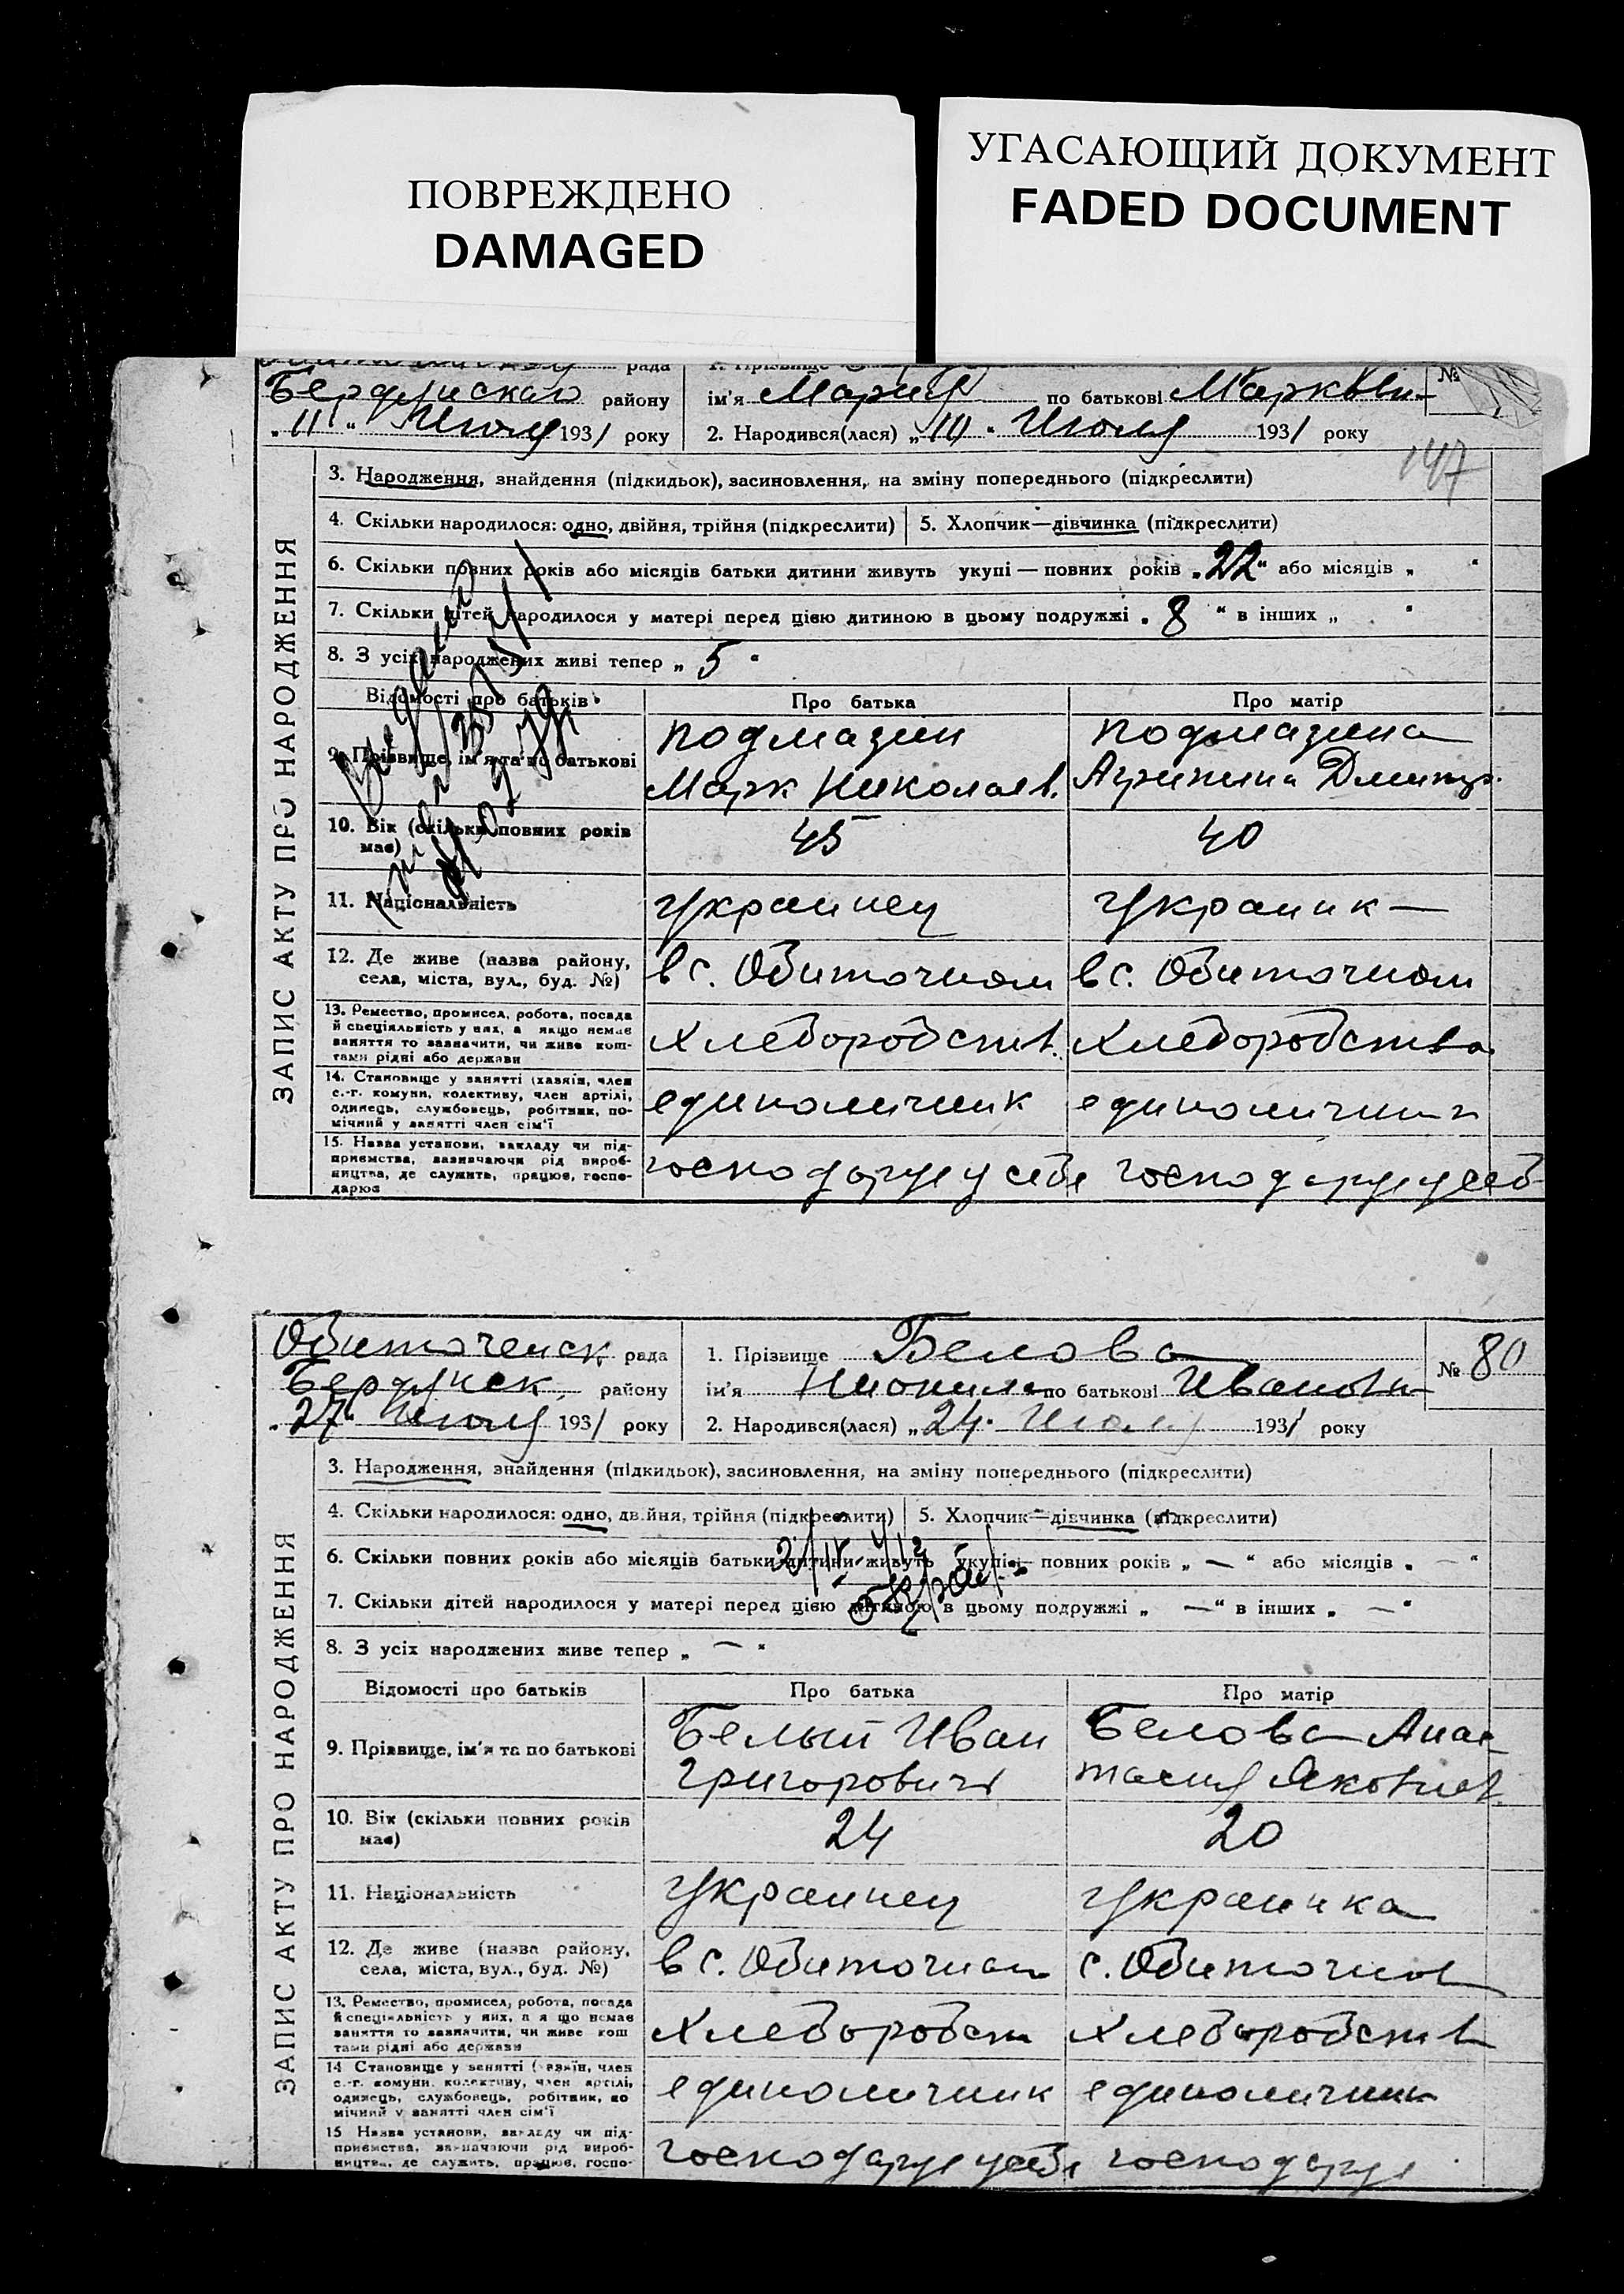 ПОВРЕЖДЕНО
DAMAGED
УГАСАЮЩИЙ ДОКУМЕНТ
FADED DOCUMENT
рада
Бердянского району
"11" Июля 1931 року
1. Прізвище
ім'я Мария по батькові Маркови-
2. Народився(лася) "10" Июля 1931 року
№
147
ЗАПИС АКТУ ПРО НАРОДЖЕННЯ
3. Народження, знайдення (підкидьок), засиновлення, на зміну попереднього (підкреслити)
4. Скільки народилося: одно, двійня, трійня (підкреслити) 5. Хлопчик—дівчинка (підкреслити)
6. Скільки повних років або місяців батьки дитини живуть укупі — повних років "22" або місяців " "
7. Скільки дітей народилося у матері перед цією дитиною в цьому подружжі "8" в інших " "
8. З усіх народжених живі тепер "5"
Відомості про батьків Про батька Про матір
9. Прізвище, ім'я та по батькові
Подмазин Подмазина
Марк Николаев. Агрипина Дмитр.
10. Вік (скільки повних років має) 45 40
11. Національність украинец украинк—
12. Де живе (назва району, села, міста, вул., буд. №) в с. Обиточном в с. Обиточном
13. Ремество, промисел, робота, посада
й спеціяльність у них, а якщо немає
заняття то зазначити, чи живе кош-
тами рідні або держави
хлеборобств. хлеборобства
14. Становище у занятті (хазяїн, член
с.-г. комуни, колективу, член артілі,
одинець, службовець, робітник, по-
мічний у занятті член сім'ї
единоличник единоличник
15. Назва установи, закладу чи під-
приємства, зазначаючи рід вироб-
ництва, де служить, працює, госпо-
дарює
господарує у себе господарує у себ-
Обиточенск. рада
Бердянск. району
"27" Июля 1931 року
1. Прізвище Белова
ім'я Неонила по батькові Ивановн-
2. Народився(лася) "24" Июля 1931 року
№ 80
ЗАПИС АКТУ ПРО НАРОДЖЕННЯ
3. Народження, знайдення (підкидьок), засиновлення, на зміну попереднього (підкреслити)
4. Скільки народилося: одно, двійня, трійня (підкреслити) 5. Хлопчик—дівчинка (підкреслити)
6. Скільки повних років або місяців батьки дитини живуть укупі — повних років " — " або місяців " — "
7. Скільки дітей народилося у матері перед цією дитиною в цьому подружжі " — " в інших " — "
8. З усіх народжених живе тепер " — "
Відомості про батьків Про батька Про матір
9. Прізвище, ім'я та по батькові
Белый Иван Белова Анас-
Григорович тасия Яковлев.
10. Вік (скільки повних років має) 24 20
11. Національність украинец украинка
12. Де живе (назва району, села, міста, вул., буд. №) в с. Обиточном с. Обиточном
13. Ремество, промисел, робота, посада
й спеціяльність у них, а якщо немає
заняття то зазначити, чи живе кош
тами рідні або держави
хлеборобств хлеборобств
14 Становище у занятті (хазяїн, член
с.-г. комуни, колективу, член артілі,
одинець, службовець, робітник, по
мічний у занятті член сім'ї
единоличник единоличник
15 Назва установи, закладу чи під-
приємства, зазначаючи рід вироб-
ництва, де служить, працює, госпо-
господарує у себе господарує